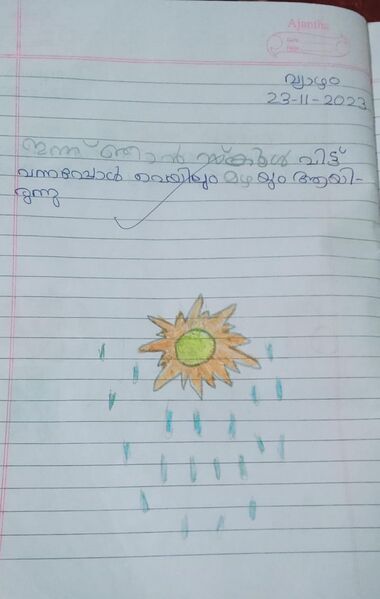 Ajantha
Date
വ്യാഴം
23-11-2023
ഇന്ന് ഞാൻ സ്കൂൾ വിട്ട്
വന്നപ്പോൾ വെയിലും മഴയും ആയി-
രുന്നു